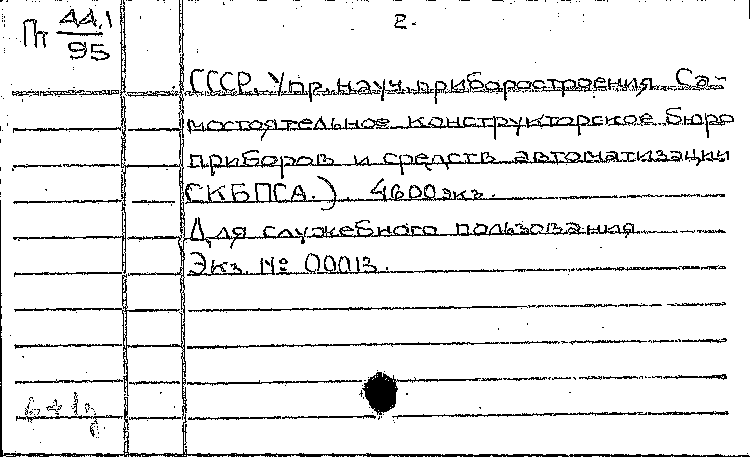 2.
Пт 44.1
95
СССР. Упр. науч. приборостроения. Са-
мостоятельное конструкторское бюро
приборов и средств автоматизации
СКБПСА.). 4600 экз.
Для служебного пользования
Экз. № 00013.